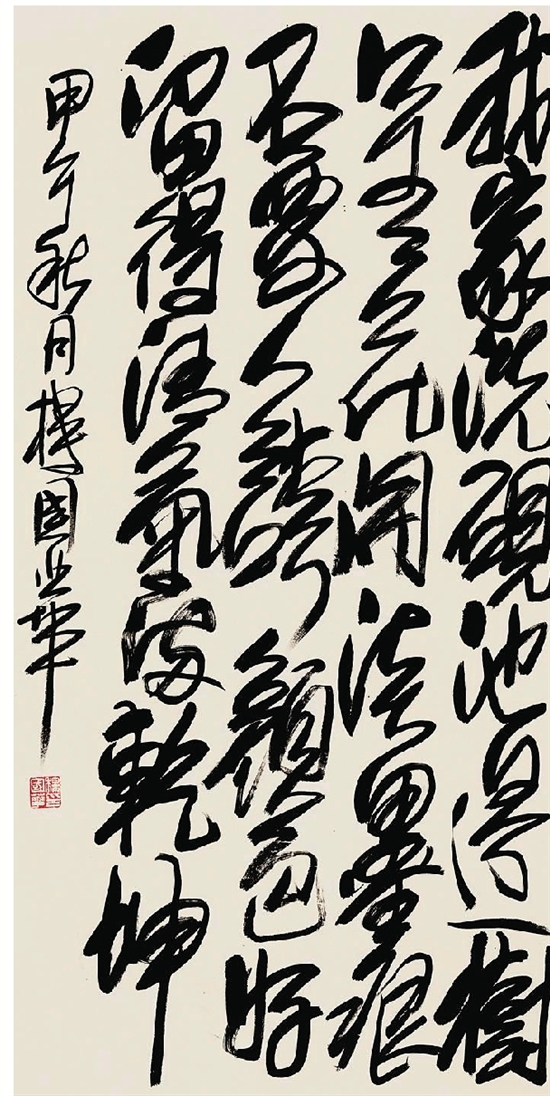 我家洗硯池邊樹
花開淡墨痕
不要人誇顏色好
留得清氣滿乾坤
甲午秋月